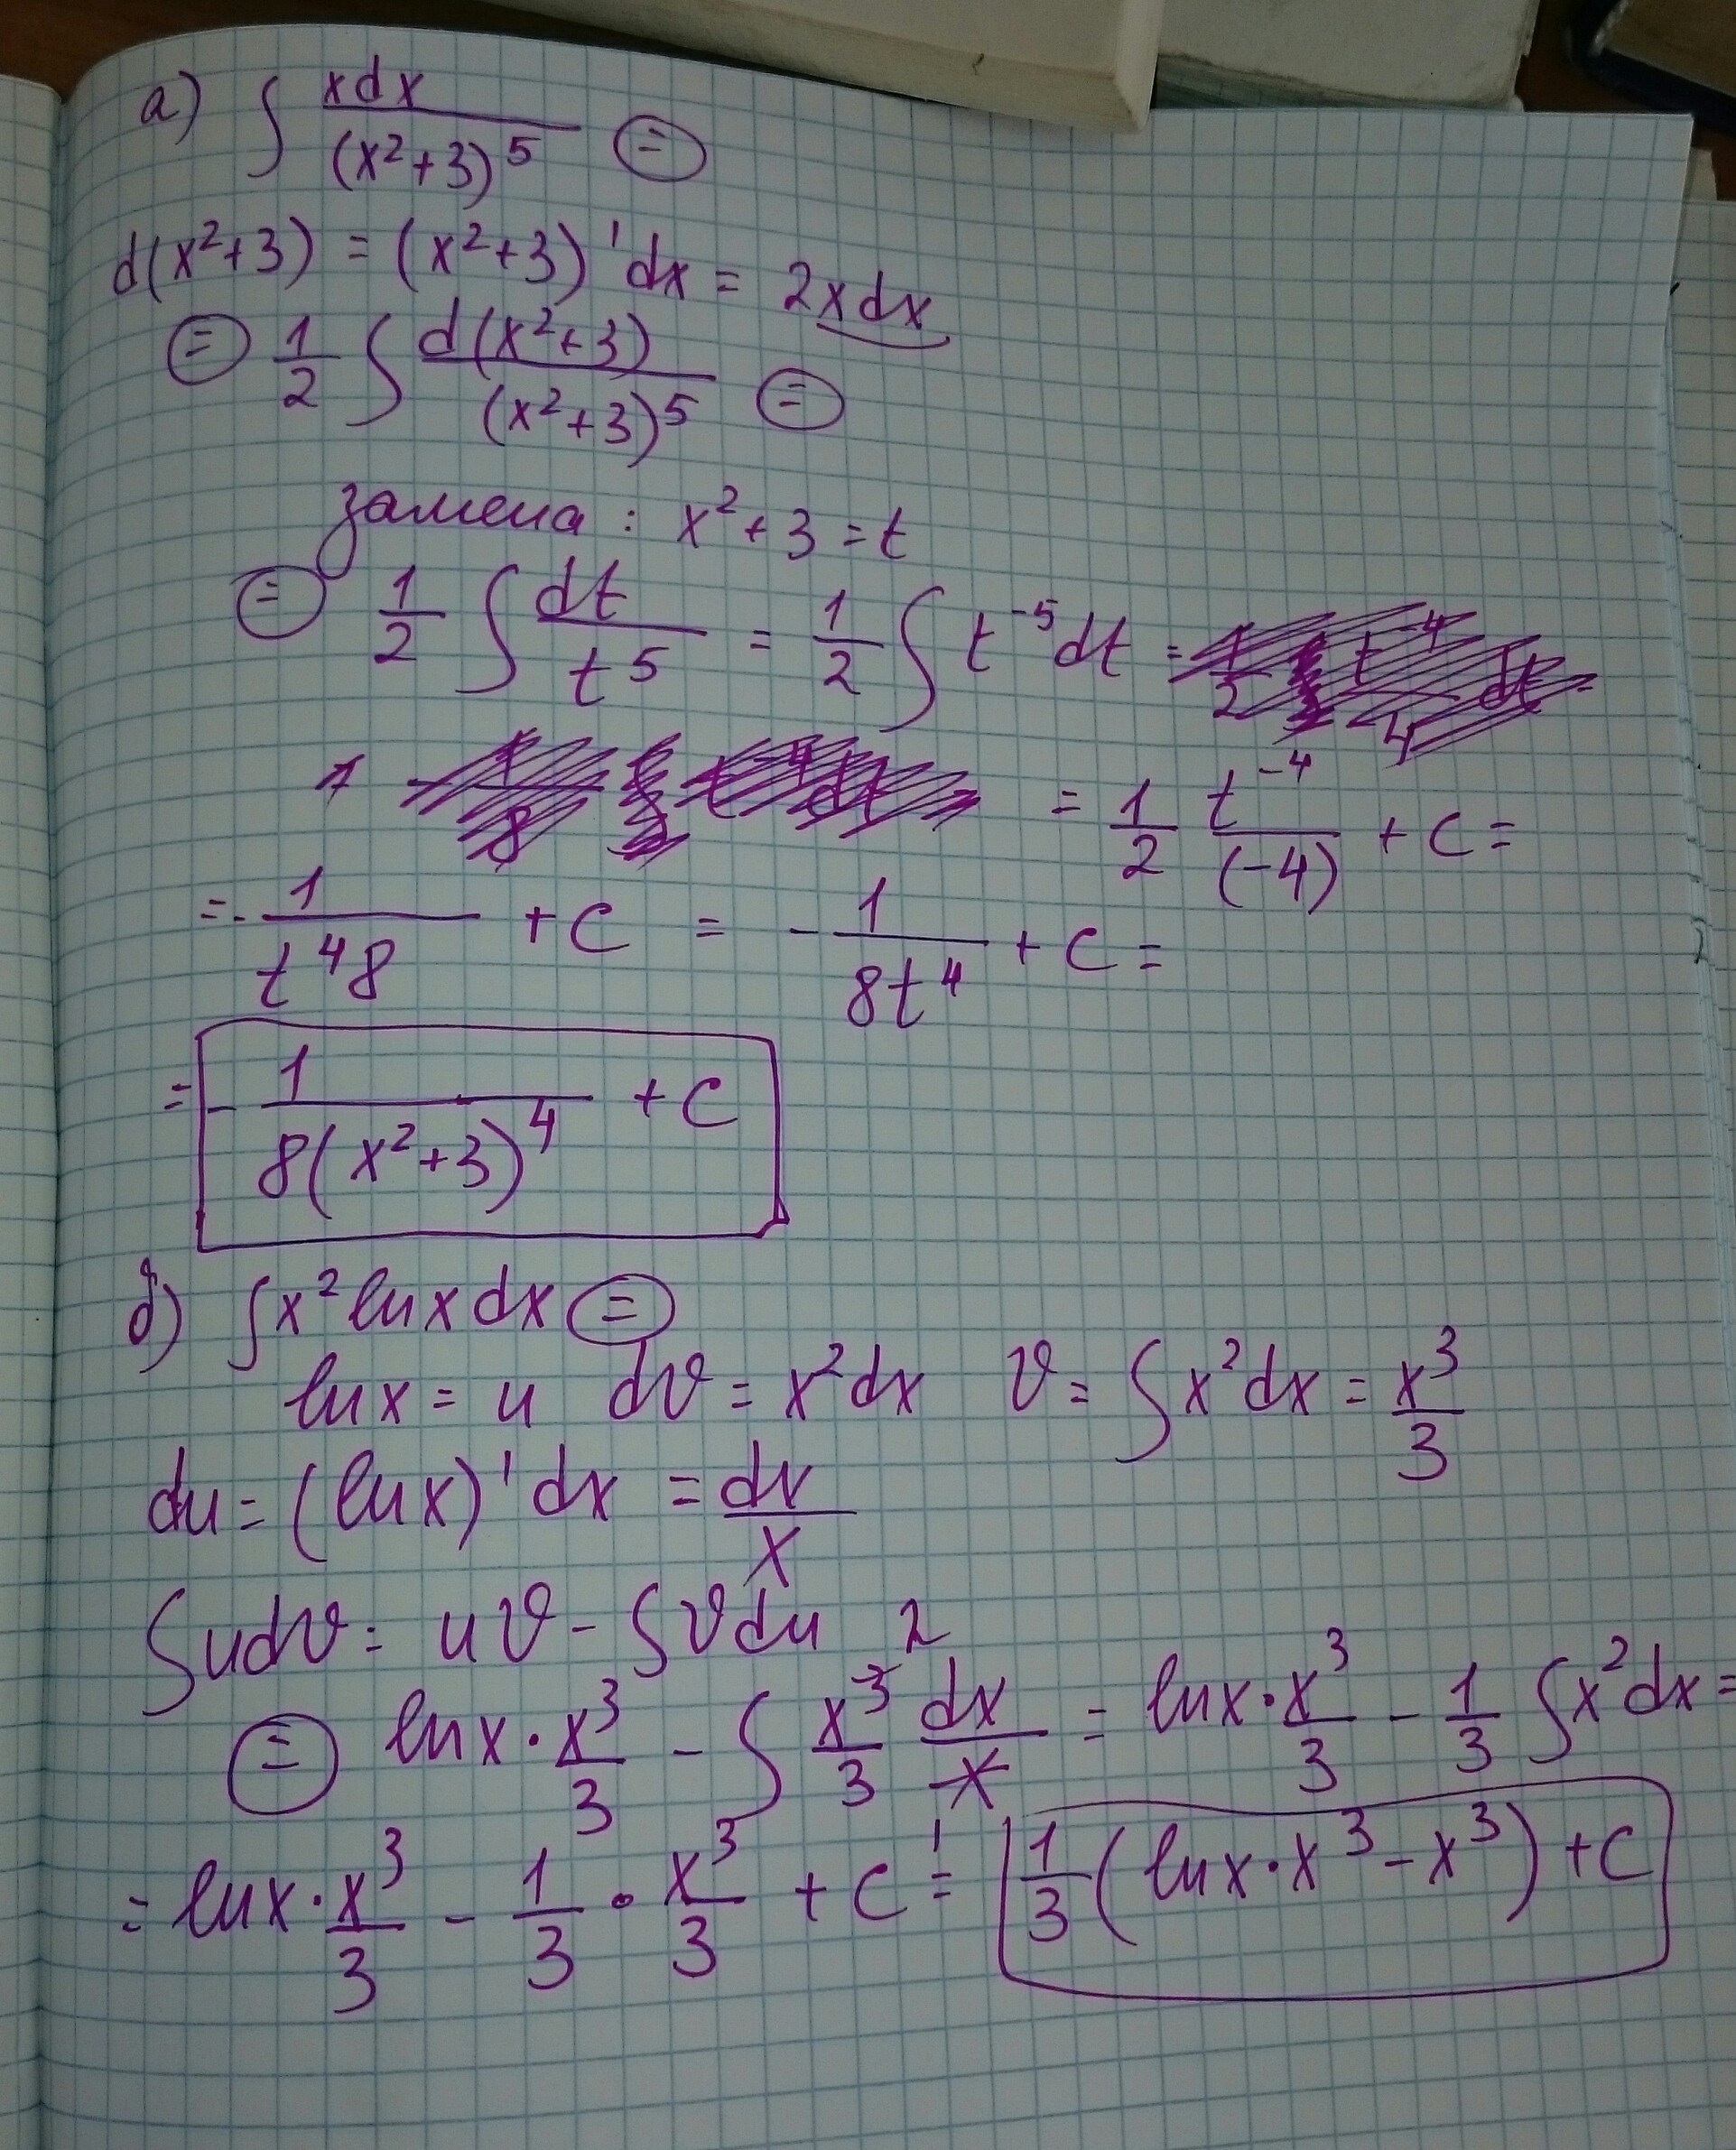 а) ∫ xdx/(x²+3)⁵ =
d(x²+3) = (x²+3)'dx = 2xdx
= 1/2 ∫ d(x²+3)/(x²+3)⁵ =
замена: x²+3=t
= 1/2 ∫ dt/t⁵ = 1/2 ∫ t⁻⁵dt =
= 1/2 t⁻⁴/(-4) + C =
= - 1/t⁴8 + C = - 1/8t⁴ + C =
= - 1/8(x²+3)⁴ + C
б) ∫x² lnx dx =
lnx = u dv = x²dx v = ∫x²dx = x³/3
du = (lnx)'dx = dx/x
∫udv = uv - ∫vdu
= lnx · x³/3 - ∫ x³/3 dx/x = lnx · x³/3 - 1/3 ∫x²dx =
= lnx · x³/3 - 1/3 · x³/3 + C = 1/3 (lnx · x³ - x³) + C